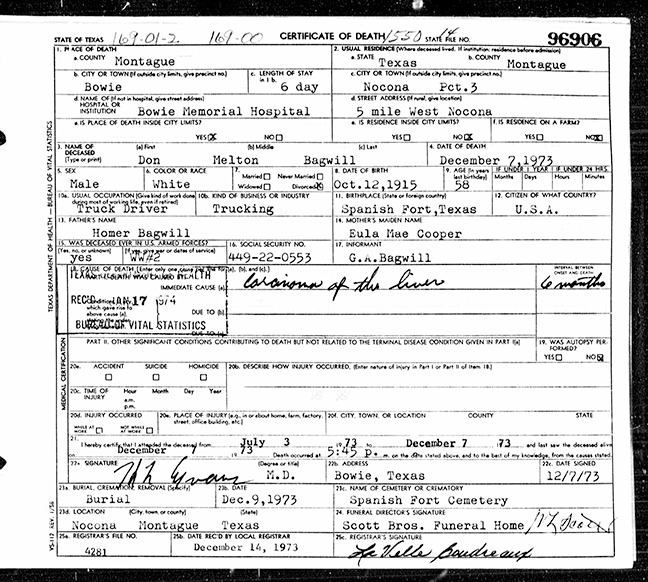 STATE OF TEXAS 169-01-2. 169-00 CERTIFICATE OF DEATH 1550 STATE FILE NO. 14 96906
1. PLACE OF DEATH 2. USUAL RESIDENCE (Where deceased lived. If institution: residence before admission)
a. COUNTY Montague a. STATE Texas b. COUNTY Montague
b. CITY OR TOWN (If outside city limits, give precinct no.) c. LENGTH OF STAY in 1 b. c. CITY OR TOWN (If outside city limits, give precinct no.)
Bowie 6 day Nocona Pct.3
d. NAME OF (If not in hospital, give street address) HOSPITAL OR INSTITUTION Bowie Memorial Hospital d. STREET ADDRESS (If rural, give location) 5 mile West Nocona
e. IS PLACE OF DEATH INSIDE CITY LIMITS? YES X NO e. IS RESIDENCE INSIDE CITY LIMITS? YES NO f. IS RESIDENCE ON A FARM? YES NO
3. NAME OF DECEASED (Type or print) (a) First (b) Middle (c) Last 4. DATE OF DEATH
Don Melton Bagwill December 7,1973
5. SEX 6. COLOR OR RACE 7. Married Never Married Widowed Divorced X 8. DATE OF BIRTH 9. AGE (In years last birthday) IF UNDER 1 YEAR Months Days IF UNDER 24 HRS. Hours Minutes
Male White Oct.12,1915 58
10a. USUAL OCCUPATION (Give kind of work done during most of working life, even if retired) 10b. KIND OF BUSINESS OR INDUSTRY 11. BIRTHPLACE (State or foreign country) 12. CITIZEN OF WHAT COUNTRY?
Truck Driver Trucking Spanish Fort,Texas U.S.A.
13. FATHER'S NAME 14. MOTHER'S MAIDEN NAME
Homer Bagwill Eula Mae Cooper
15. WAS DECEASED EVER IN U.S. ARMED FORCES? (Yes, no, or unknown) (If yes, give war or dates of service) 16. SOCIAL SECURITY NO. 17. INFORMANT
yes WW#2 449-22-0553 G.A.Bagwill
18. CAUSE OF DEATH [Enter only one cause per line for (a), (b), and (c).] INTERVAL BETWEEN ONSET AND DEATH
IMMEDIATE CAUSE (a) Carcinoma of the liver 6 months
REC'D JAN 17 1974
which gave rise to above cause (a), DUE TO (b)
BUREAU OF VITAL STATISTICS DUE TO (c)
PART II. OTHER SIGNIFICANT CONDITIONS CONTRIBUTING TO DEATH BUT NOT RELATED TO THE TERMINAL DISEASE CONDITION GIVEN IN PART I(a) 19. WAS AUTOPSY PERFORMED? YES NO X
20a. ACCIDENT SUICIDE HOMICIDE 20b. DESCRIBE HOW INJURY OCCURRED. (Enter nature of injury in Part I or Part II of Item 18.)
20c. TIME OF INJURY Hour a.m. p.m. Month Day Year
20d. INJURY OCCURRED WHILE AT WORK NOT WHILE AT WORK 20e. PLACE OF INJURY (e.g., in or about home, farm, factory, street, office building, etc.) 20f. CITY, TOWN, OR LOCATION COUNTY STATE
21. I hereby certify that I attended the deceased from July 3 1973 to December 7 1973 and last saw the deceased alive
on December 7 1973 Death occurred at 5:45 p. m. on the date stated above, and to the best of my knowledge, from the causes stated.
22a. SIGNATURE (Degree or title) 22b. ADDRESS 22c. DATE SIGNED
M.D. Bowie, Texas 12/7/73
23a. BURIAL, CREMATION, REMOVAL (Specify) 23b. DATE 23c. NAME OF CEMETERY OR CREMATORY
Burial Dec.9,1973 Spanish Fort Cemetery
23d. LOCATION (City, town, or county) (State) 24. FUNERAL DIRECTOR'S SIGNATURE
Nocona Montague Texas Scott Bros. Funeral Home
25a. REGISTRAR'S FILE NO. 25b. DATE REC'D BY LOCAL REGISTRAR 25c. REGISTRAR'S SIGNATURE
4281 December 14, 1973 La Velle Boudreaux
TEXAS DEPARTMENT OF HEALTH — BUREAU OF VITAL STATISTICS
MEDICAL CERTIFICATION
VS-112 REV. 1/56